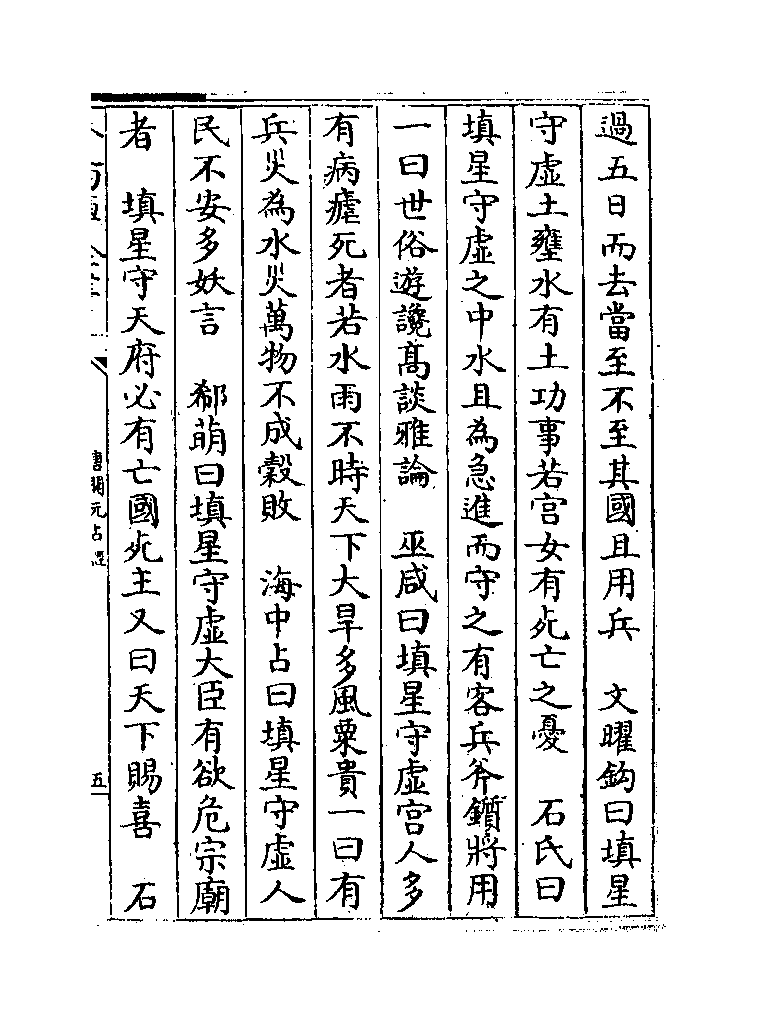 過五日而去當至不至其國且用兵　文曜鈎曰填星
守虛土壅水有土功事若宫女有死亡之憂　石氏曰
填星守虛之中水且為急進而守之有客兵斧鑕將用
一曰世俗遊讒髙談雅論　巫咸曰填星守虛宫人多
有病瘧死者若水雨不時天下大旱多風粟貴一曰有
兵災為水災萬物不成穀敗　海中占曰填星守虛人
民不安多妖言　郗萌曰填星守虛大臣有欲危宗廟
者　填星守天府必有亡國死主又曰天下賜喜　石
唐開元占經
五